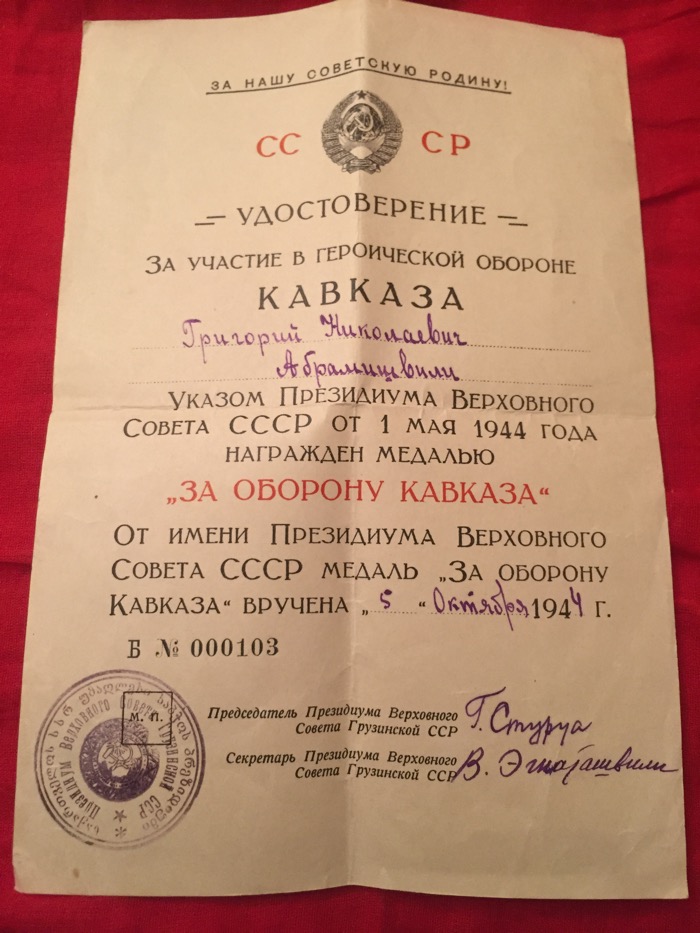 ЗА НАШУ СОВЕТСКУЮ РОДИНУ!
СС СР
УДОСТОВЕРЕНИЕ
ЗА УЧАСТИЕ В ГЕРОИЧЕСКОЙ ОБОРОНЕ
КАВКАЗА
Григорий Николаевич
Абрамишвили
УКАЗОМ ПРЕЗИДИУМА ВЕРХОВНОГО
СОВЕТА СССР ОТ 1 МАЯ 1944 ГОДА
НАГРАЖДЕН МЕДАЛЬЮ
„ЗА ОБОРОНУ КАВКАЗА“
ОТ ИМЕНИ ПРЕЗИДИУМА ВЕРХОВНОГО
СОВЕТА СССР МЕДАЛЬ „ЗА ОБОРОНУ
КАВКАЗА“ ВРУЧЕНА „5“ Октября 1944 г.
Б № 000103
м. п.
Президиум Верховного Совета Грузинской ССР
Председатель Президиума Верховного
Совета Грузинской ССР Г. Стуруа
Секретарь Президиума Верховного
Совета Грузинской ССР В. Эгнаташвили